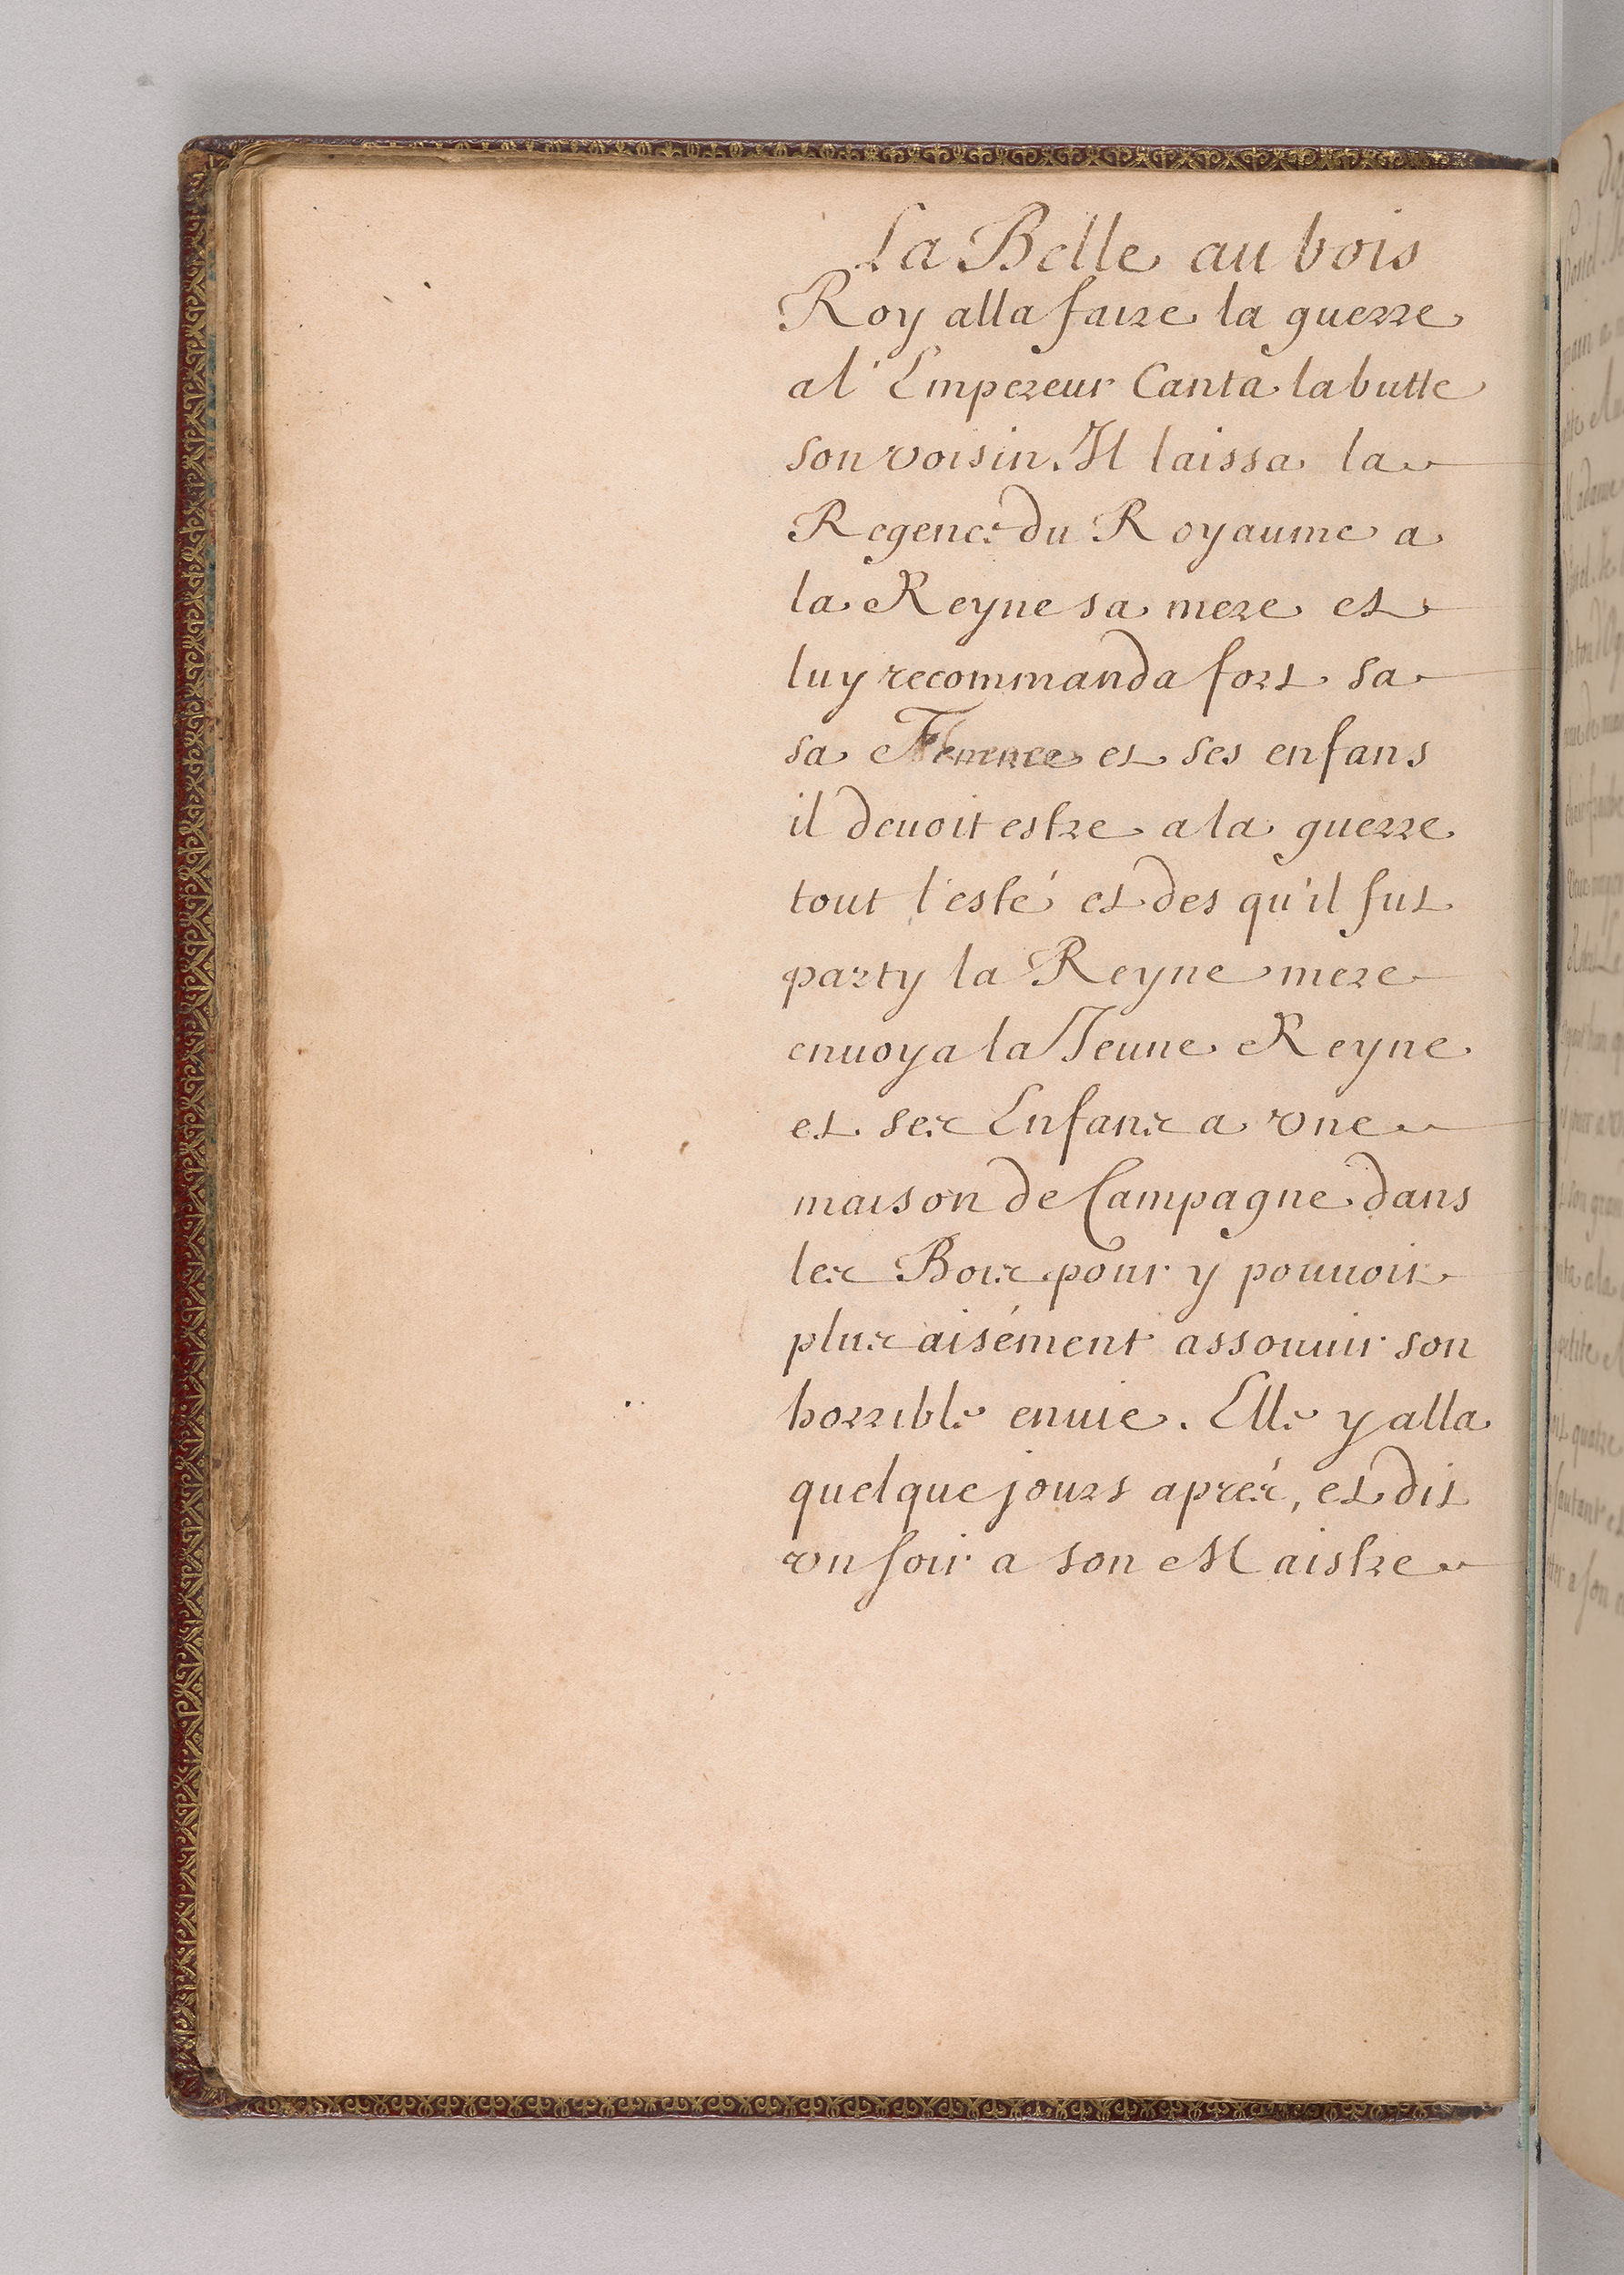 La Belle au bois
Roy alla faire la guerre
a l'Empereur Canta labutte
son voisin. Il laissa la
Regence du Royaume a
la Reyne sa mere et
luy recommanda fort sa
sa Femme et ses enfans
il deuoit estre a la guerre
tout l'esté et des qu'il fut
party la Reyne mere
enuoya la Jeune Reyne
et ses Enfans a vne
maison de Campagne dans
les Bois pour y pouuoir
plus aisément assouuir son
horrible enuie. Elle y alla
quelque jours aprés, et dit
vn soir a son Maistre